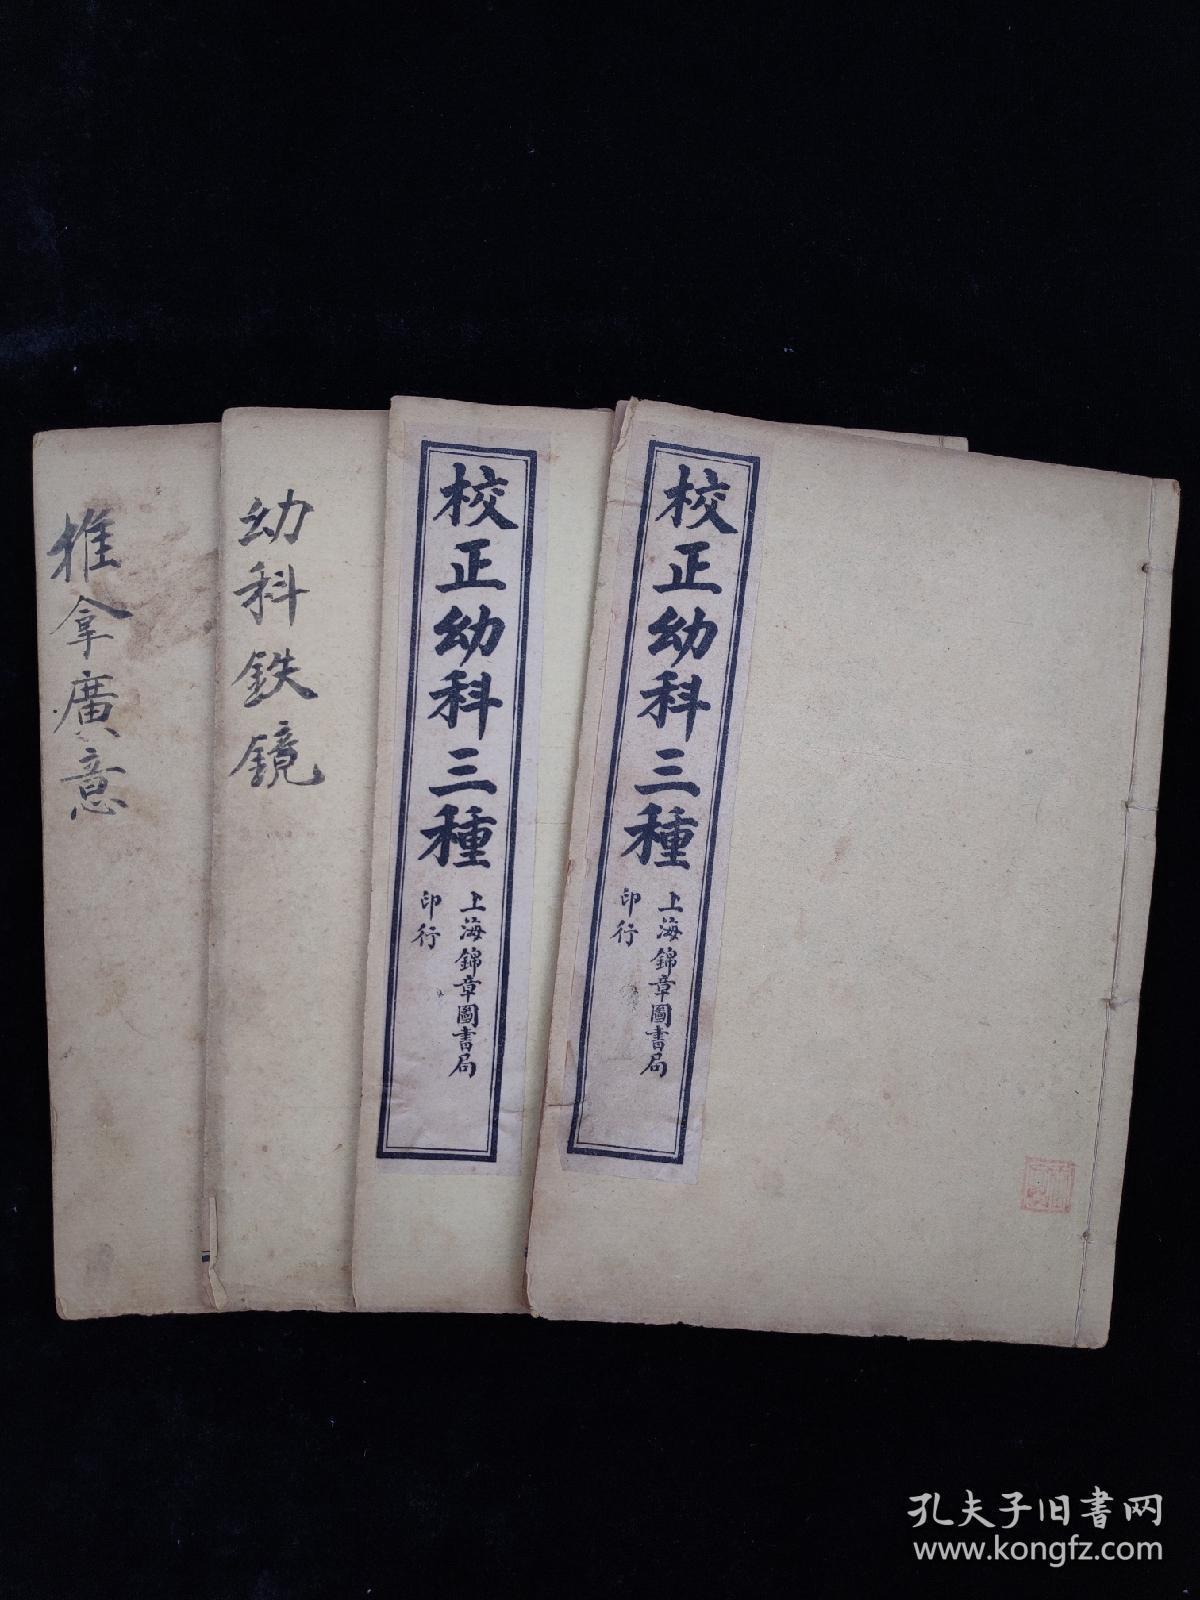 校正幼科三種
上海錦章圖書局
印行
校正幼科三種
上海錦章圖書局
印行
幼科鉄鏡
推拿廣意
孔夫子旧书网
www.kongfz.com